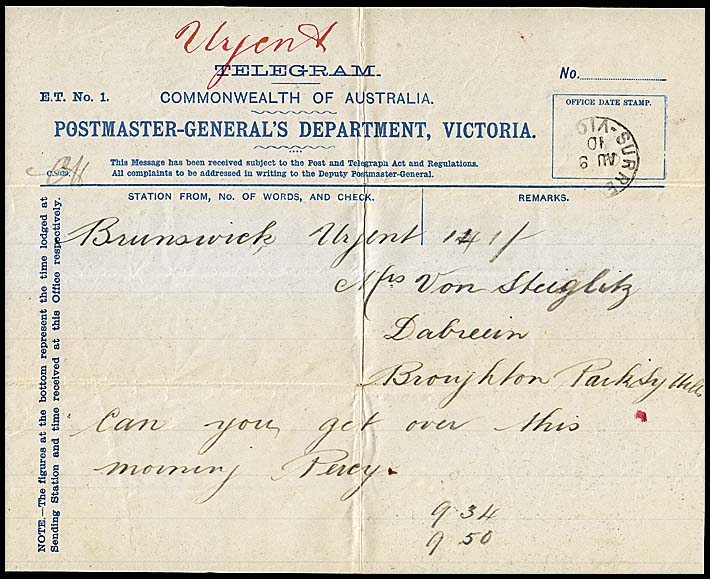 Urgent
TELEGRAM.
No.
E.T. No. 1.
COMMONWEALTH OF AUSTRALIA.
OFFICE DATE STAMP.
POSTMASTER-GENERAL'S DEPARTMENT, VICTORIA.
SURRE
AU 9
10
VIC
This Message has been received subject to the Post and Telegraph Act and Regulations.
All complaints to be addressed in writing to the Deputy Postmaster-General.
STATION FROM, No. OF WORDS, AND CHECK.
REMARKS.
Brunswick Urgent 14 1/-
Mrs Von Steiglitz
Broughton Park Sy Hills
can you get over this
morning Percy.
9 34
9 50
NOTE.—The figures at the bottom represent the time lodged at
Sending Station and time received at this Office respectively.